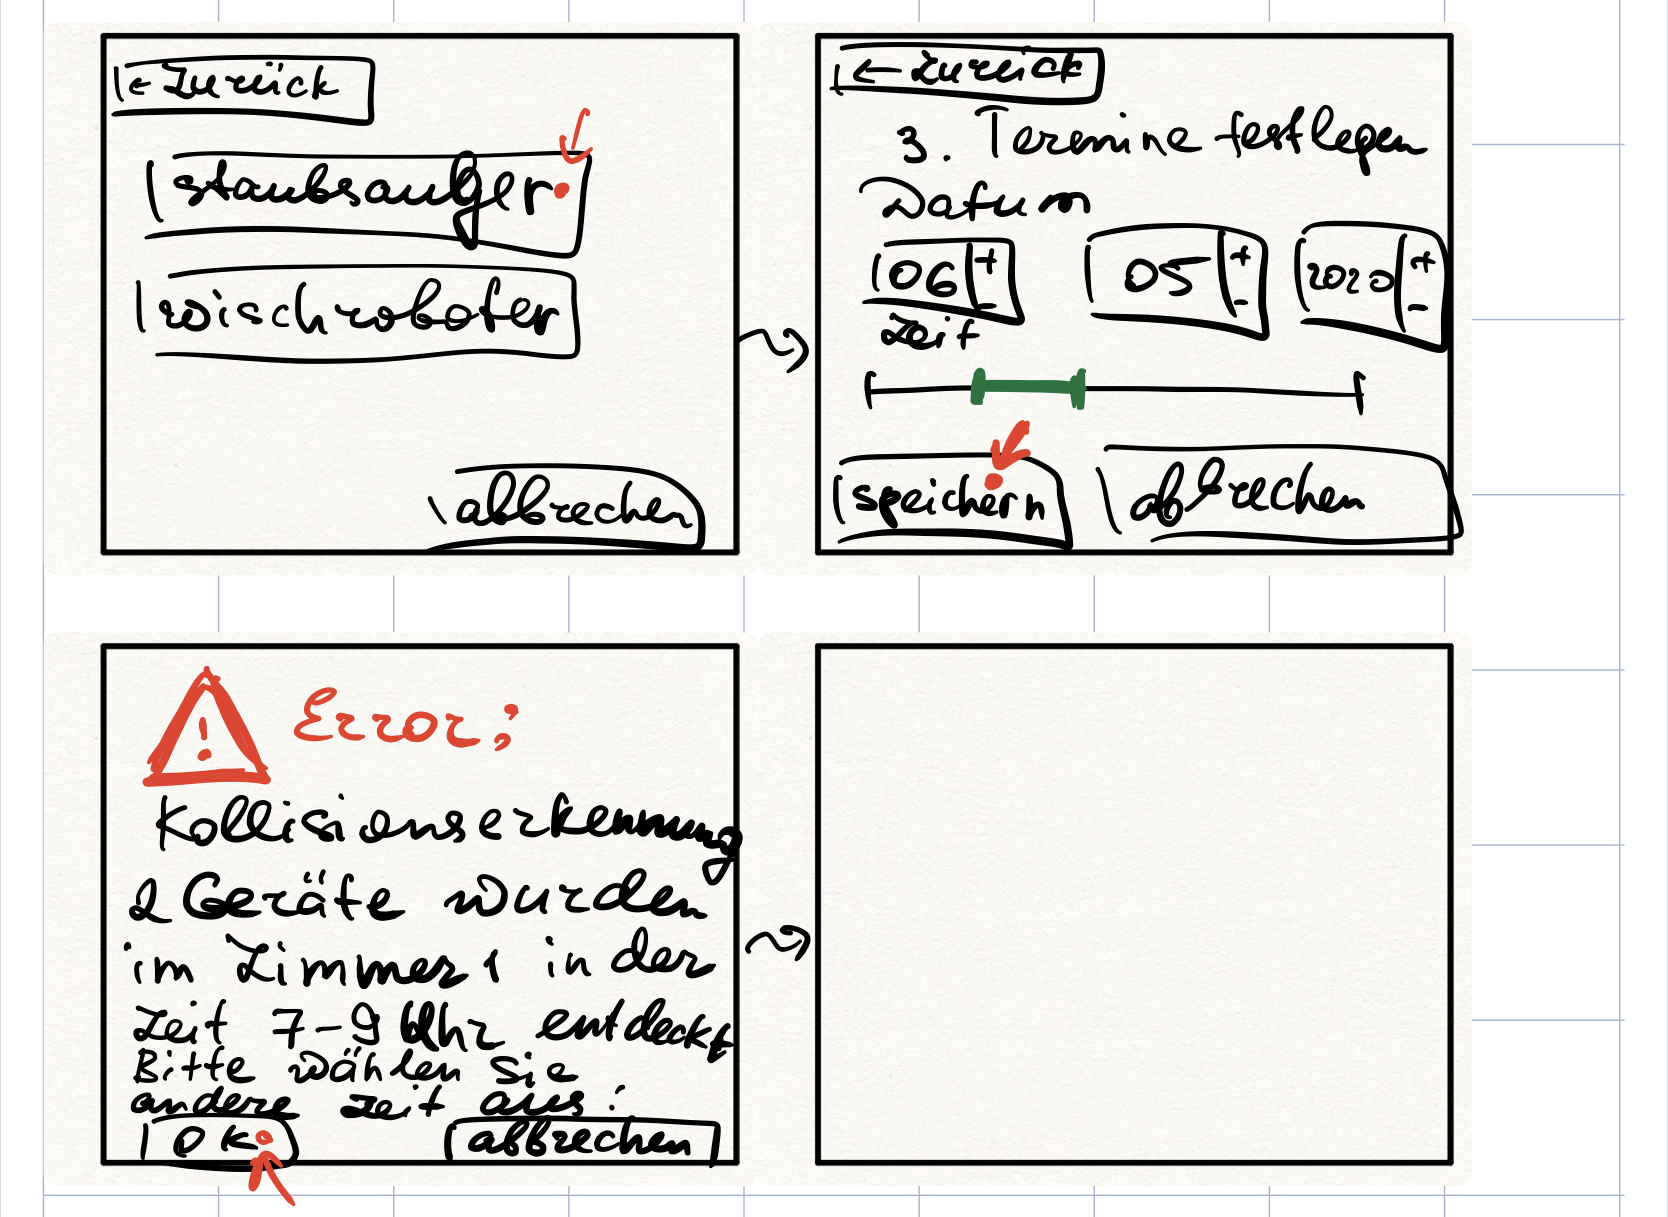 ← Zurück
Staubsauger
wischroboter
abbrechen
← Zurück
3. Termine festlegen
Datum
06 + -
05 + -
2020 + -
Zeit
speichern
abbrechen
! Error:
Kollisionserkennung
2 Geräte wurden
im Zimmer 1 in der
Zeit 7-9 Uhr entdeckt
Bitte wählen Sie
andere Zeit aus:
OK
abbrechen